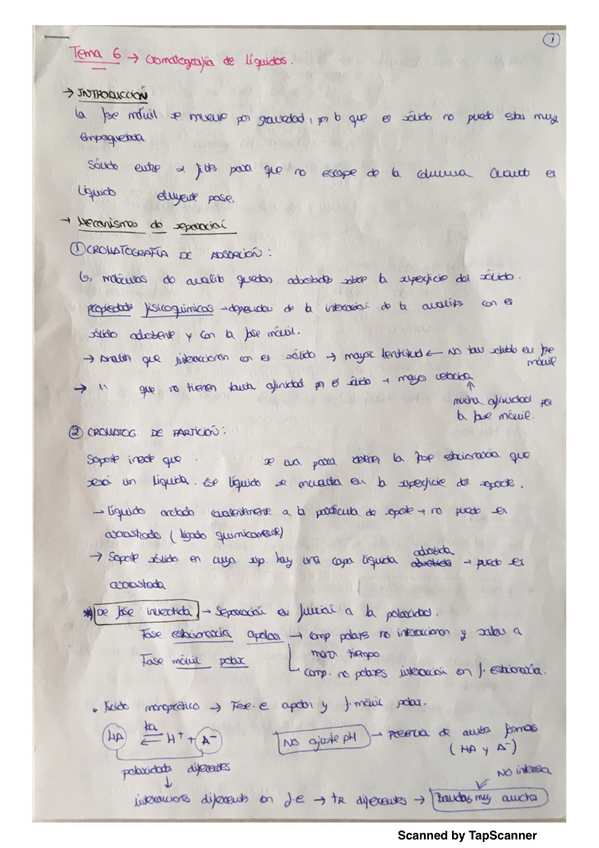 1
Tema 6 → Cromatografía de líquidos.
→ INTRODUCCIÓN
La fase móvil se mueve por gravedad, por lo que el sólido no puede estar muy
empaquetada
Sólido entre 2 frits para que no escape de la columna cuando el
líquido eluyente pase.
→ Mecanismos de separación
① CROMATOGRAFÍA DE ADSORCIÓN:
↳ moléculas de analito quedan adsorbidas sobre la superficie del sólido.
propiedades fisicoquímicas → dependen de la interacción de la analito con el
sólido adsorbente y con la fase móvil.
→ Analitos que interaccionan con el sólido → mayor lentitud ← No tan soluble en fase
móvil
→ " que no tienen tanta afinidad por el sólido → mayor velocidad
↑
mucha afinidad por
la fase móvil.
② CROMATOG. DE PARTICIÓN:
Soporte inerte que se usa para retener la fase estacionaria que
será un líquido. Ese líquido se encuentra en la superficie del soporte.
→ Líquido anclado covalentemente a la partícula de soporte → no puede ser
arrastrado (ligado químicamente)
→ Soporte sólido en cuya sup hay una capa líquida adsorbida → puede ser
arrastrada
* De fase invertida → Separación en función a la polaridad.
Fase estacionaria apolar → comp polares no interaccionan y salen a
menor tiempo
Fase móvil polar
comp. no polares interaccionan en f. estacionaria.
• Ácido monoprótico → Fase e apolar y f. móvil polar.
HA ⇌ H⁺ + A⁻
Ka
No ajuste pH → Presencia de ambas formas
(HA y A⁻)
polaridades diferentes
↓
interacciones diferentes en f.e → tR diferentes → Bandas muy anchas
NO interesa
Scanned by TapScanner